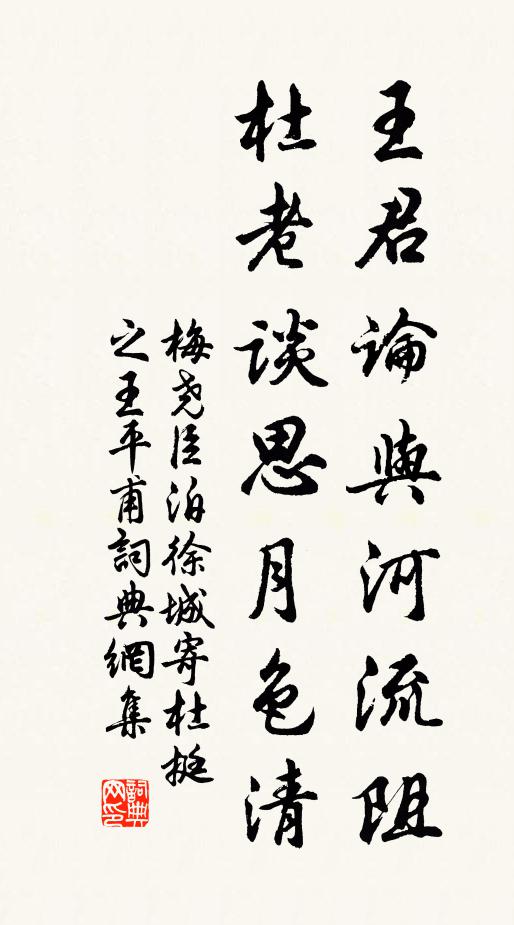 王君論與河流阻
杜老談思月色清
梅尧臣泊徐城寄杜挺
之王平甫詞典網集
詞典网印